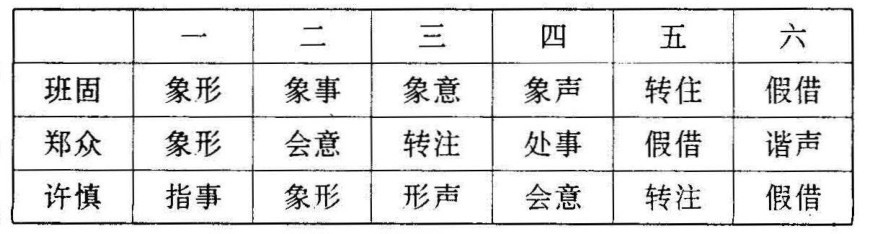 一 二 三 四 五 六
班固 象形 象事 象意 象声 转住 假借
郑众 象形 会意 转注 处事 假借 谐声
许慎 指事 象形 形声 会意 转注 假借